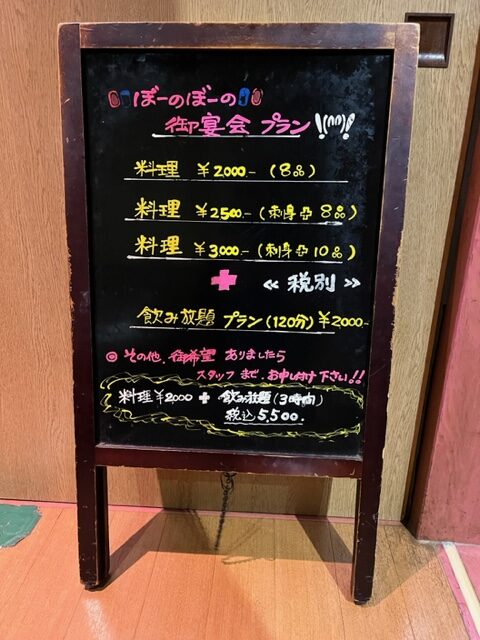 ぼーのぼーの
御宴会 プラン !(^^)!
料理 ¥2000- (8品)
料理 ¥2500- (刺身付 8品)
料理 ¥3,000- (刺身付 10品)
+ ≪ 税別 ≫
飲み放題 プラン(120分)¥2000-
◎ その他、御希望 ありましたら
スタッフ まで、お申し付け 下さい!!
料理 ¥2000 + 飲み放題(3時間)
税込 5,500.